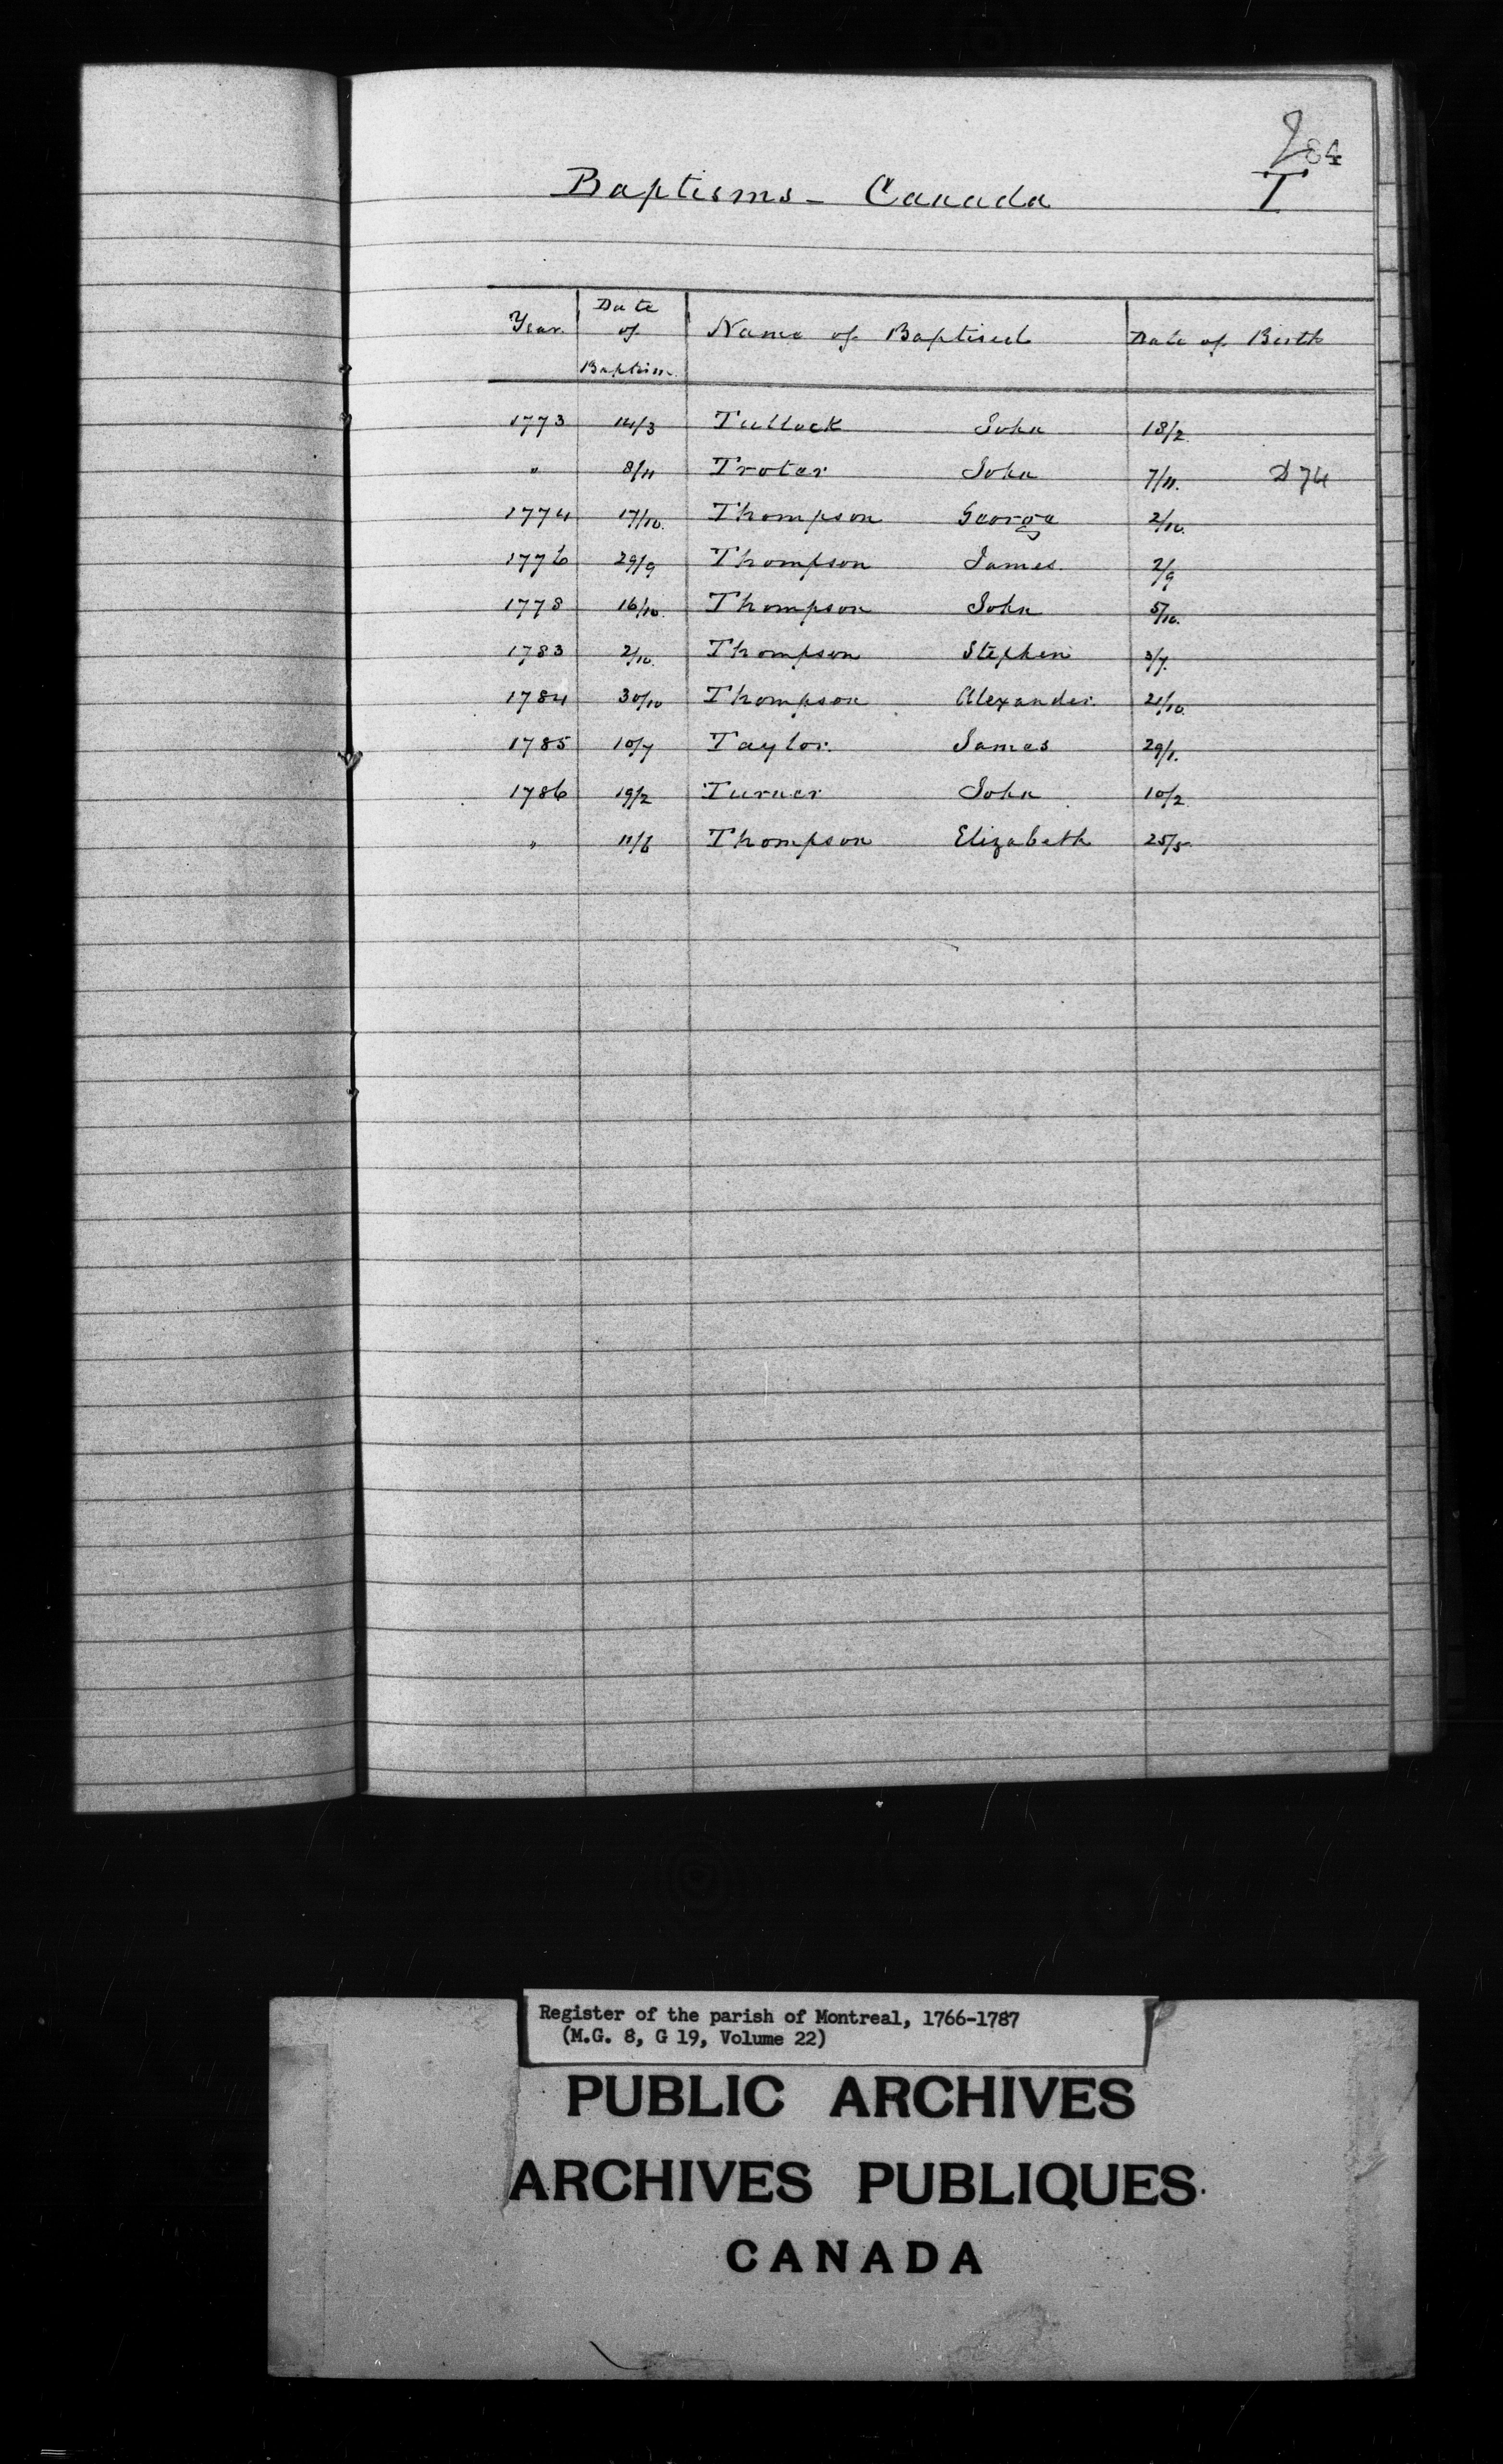 84
T
Baptisms - Canada
Year. Date of Baptism. Name of Baptised Date of Birth
1773 14/3 Tullock John 18/2.
" 8/11 Trotar John 7/11. D 74
1774 17/10. Thompson George 2/10.
1776 29/9 Thompson James. 2/9
1778 16/10. Thompson John 5/10.
1783 2/10. Thompson Stephen 3/7.
1784 30/10 Thompson Alexander. 21/10.
1785 10/7 Taylor. James 29/1.
1786 19/2 Turner John 10/2.
" 11/6 Thompson Elizabeth 25/5.
Register of the parish of Montreal, 1766-1787
(M.G. 8, G 19, Volume 22)
PUBLIC ARCHIVES
ARCHIVES PUBLIQUES
CANADA